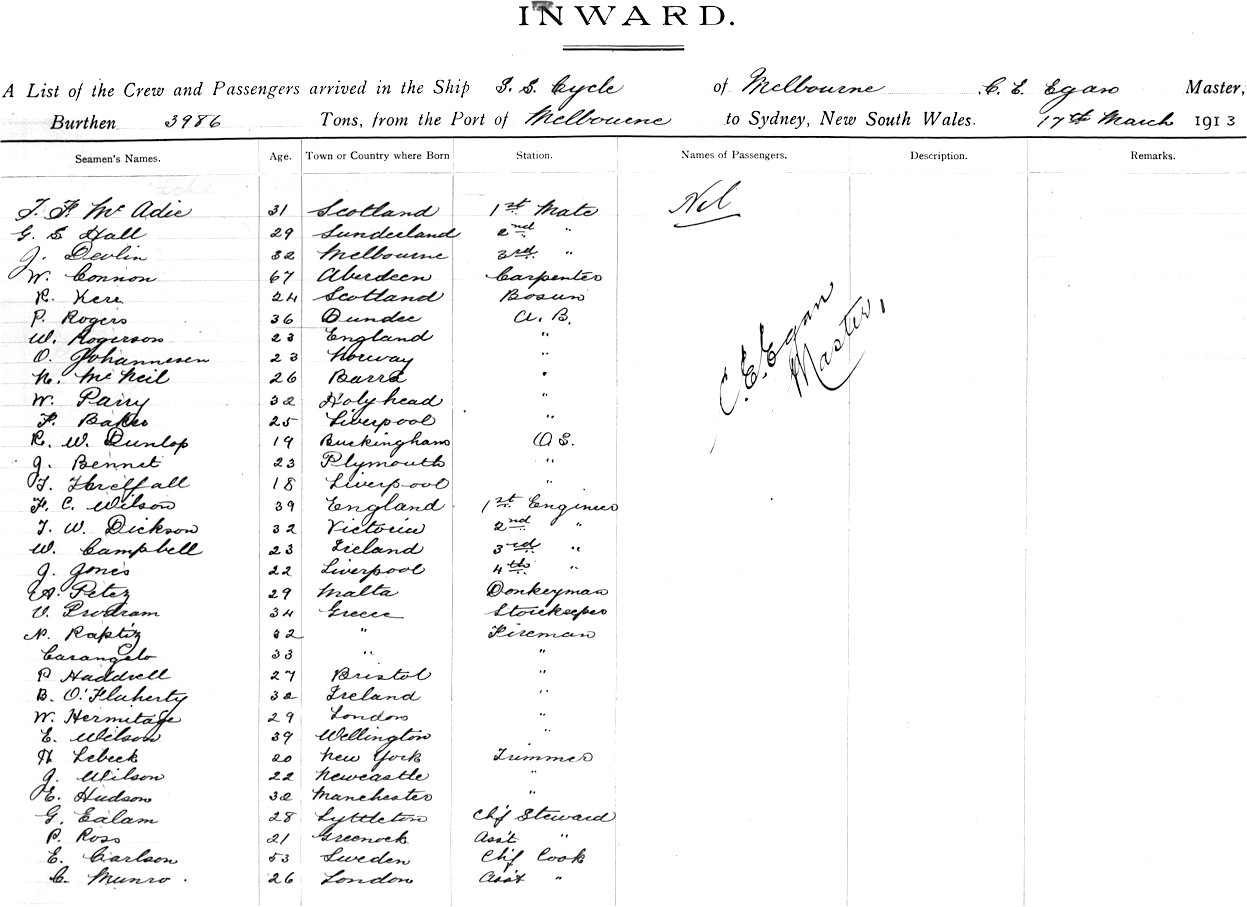 INWARD.
A List of the Crew and Passengers arrived in the Ship S. S. Cycle of Melbourne C. E. Egan Master,
Burthen 3986 Tons, from the Port of Melbourne to Sydney, New South Wales. 17th March 1913
Seamen's Names. Age. Town or Country where Born Station. Names of Passengers. Description. Remarks.
J. F. McAdie 31 Scotland 1st Mate Nil
G. S Hall 29 Sunderland 2nd "
J. Devlin 32 Melbourne 3rd "
W. Connon 67 Aberdeen Carpenter
R. Kerr 24 Scotland Bosun
P. Rogers 36 Dundee A. B.
W. Rogerson 23 England "
O. Johannesen 23 Norway "
N. McNeil 26 Barra "
W. Parry 32 Holyhead "
F. Baker 25 Liverpool "
R. W. Dunlop 19 Buckingham O S.
J. Bennet 23 Plymouth "
T. Threlfall 18 Liverpool "
F. C. Wilson 39 England 1st Engineer
T. W. Dickson 32 Victoria 2nd "
W. Campbell 23 Ireland 3rd "
J. Jones 22 Liverpool 4th "
A. Petez 29 Malta Donkeyman
V. Prodram 34 Greece Storekeeper
N. Raptiz 32 " Fireman
Carangelo 33 " "
P Haddrell 27 Bristol "
B. O'Flaherty 32 Ireland "
W. Hermitage 29 London "
E. Wilson 39 Wellington "
H Lebeck 20 New York Trimmer
J. Wilson 22 Newcastle "
E. Hudson 32 Manchester "
G. Ealam 28 Lyttleton Chf Steward
P. Ross 21 Greenock Ass't "
E. Carlson 53 Sweden Chf Cook
C. Munro 26 London Ass't "
C. E. Egan
Master,